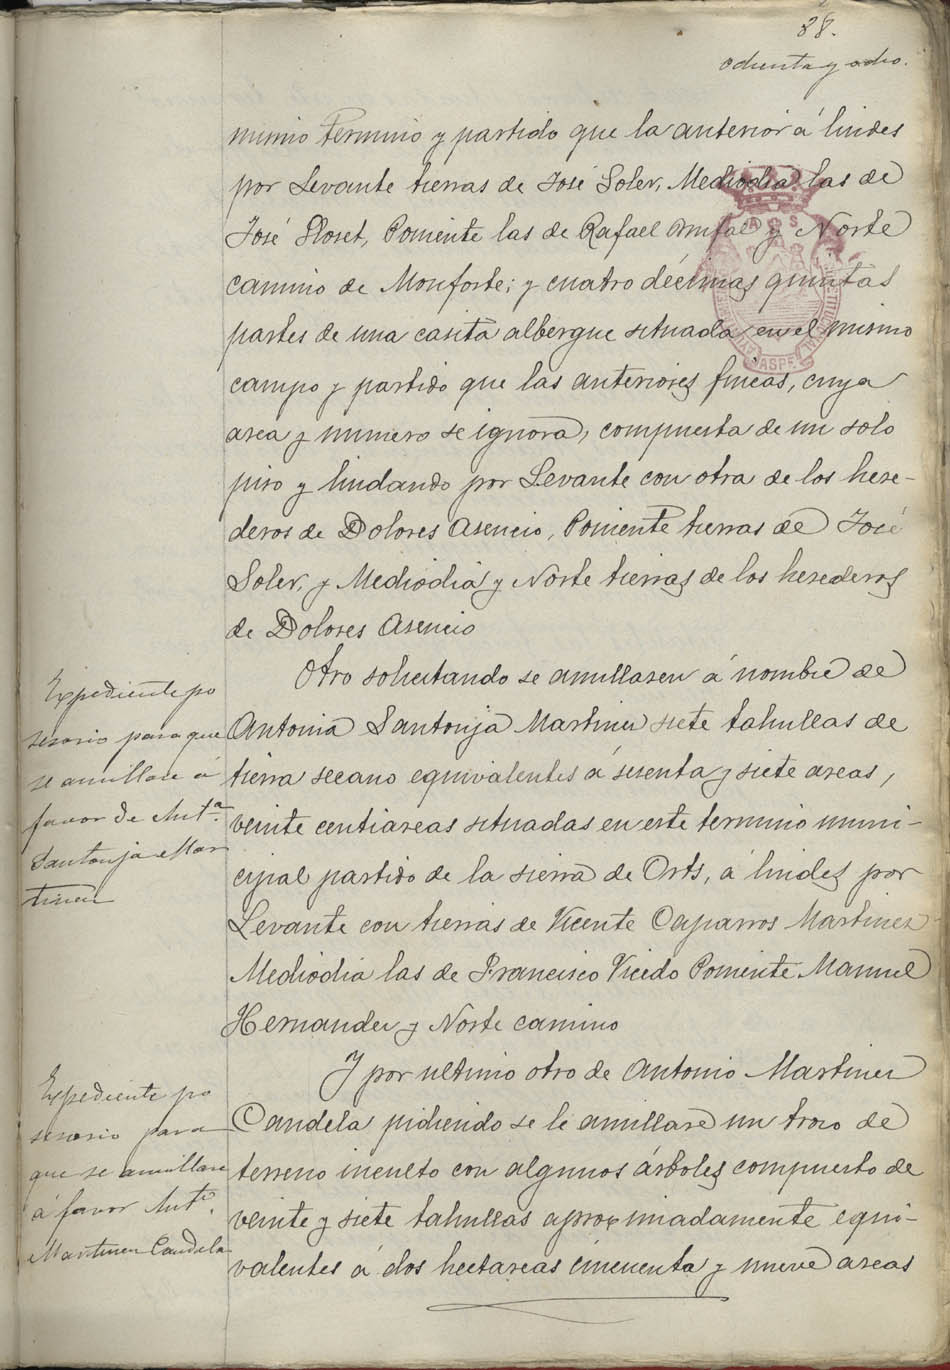 88.
ochenta y ocho.
mismo termino y partido que la anterior á lindes
por Levante tierras de José Soler, Mediodia las de
José Lloset, Poniente las de Rafael y Norte
camino de Monforte; y cuatro décimas quintas
partes de una casita albergue situada en el mismo
campo y partido que las anteriores fincas, cuya
area y numero se ignora, compuesta de un solo
piso y lindando por Levante con otra de los here-
deros de Dolores Asencio, Poniente tierras de José
Soler, y Mediodia y Norte tierras de los herederos
de Dolores Asencio
Expediente po
sesorio para que
se amillare á
favor de Antª
Santonja Mar
tinez
Otro solicitando se amillasen á nombre de
Antonia Santonja Martinez siete tahullas de
tierra secano equivalentes á sesenta y siete areas,
veinte centiareas situadas en este termino muni-
cipal partido de la sierra de Orts, á lindes por
Levante con tierras de Vicente Caparros Martinez
Mediodia las de Francisco Vicedo Poniente Manuel
Hernandez y Norte camino
Expediente po
sesorio para
que se amillare
á favor Antº.
Martinez Candela
Y por ultimo otro de Antonio Martinez
Candela pidiendo se le amillare un trozo de
terreno inculto con algunos árboles compuesto de
veinte y siete tahullas aproximadamente equi-
valentes á dos hectareas cincuenta y nueve areas